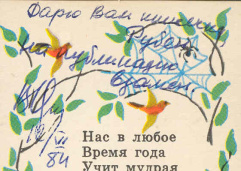 Дарю Вам книжку
Рубак
на публикацию
Взамен.
19 VII
84
Нас в любое
Время года
Учит мудрая